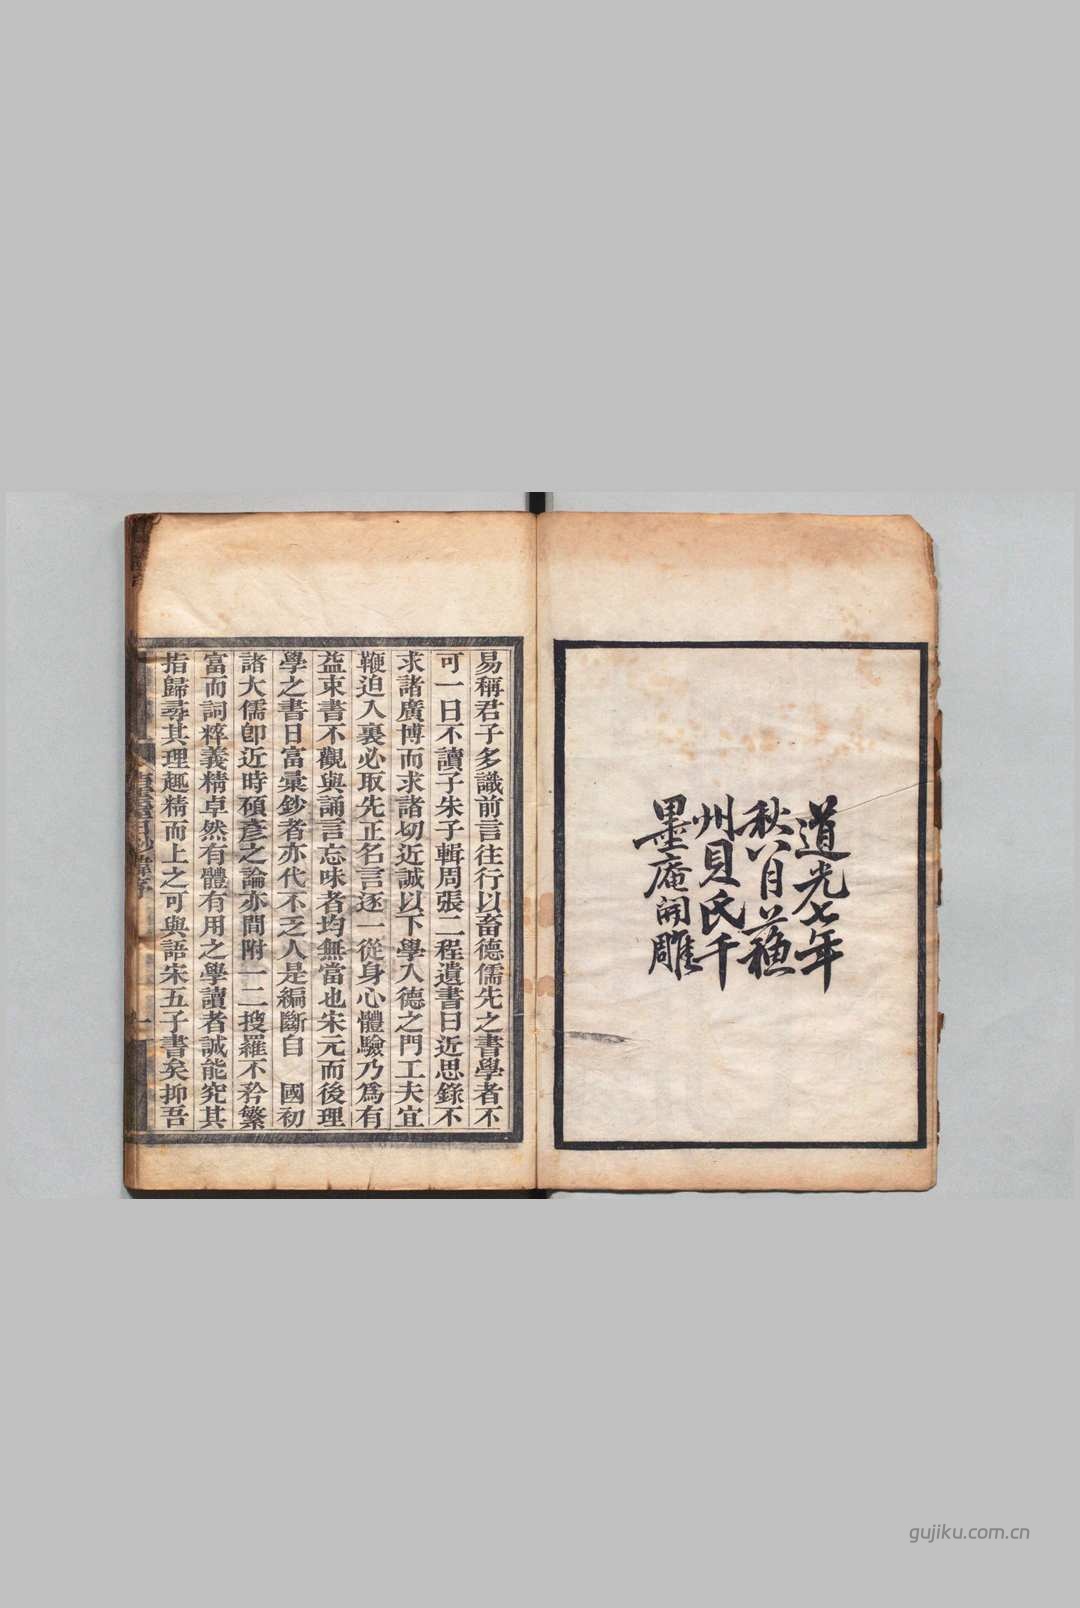 道光七年
秋八月蘇
州貝氏千
墨庵開雕
易稱君子多識前言往行以畜德儒先之書學者不
可一日不讀子朱子輯周張二程遺書曰近思錄不
求諸廣博而求諸切近誠以下學入德之門工夫宜
鞭迫入裏必取先正名言逐一從身心體驗乃爲有
益束書不觀與誦言忘味者均無當也宋元而後理
學之書日富彙鈔者亦代不乏人是編斷自　國初
諸大儒卽近時碩彥之論亦間附一二搜羅不矜繁
富而詞粹義精卓然有體有用之學讀者誠能究其
指歸尋其理趣精而上之可與語宋五子書矣抑吾
gujiku.com.cn